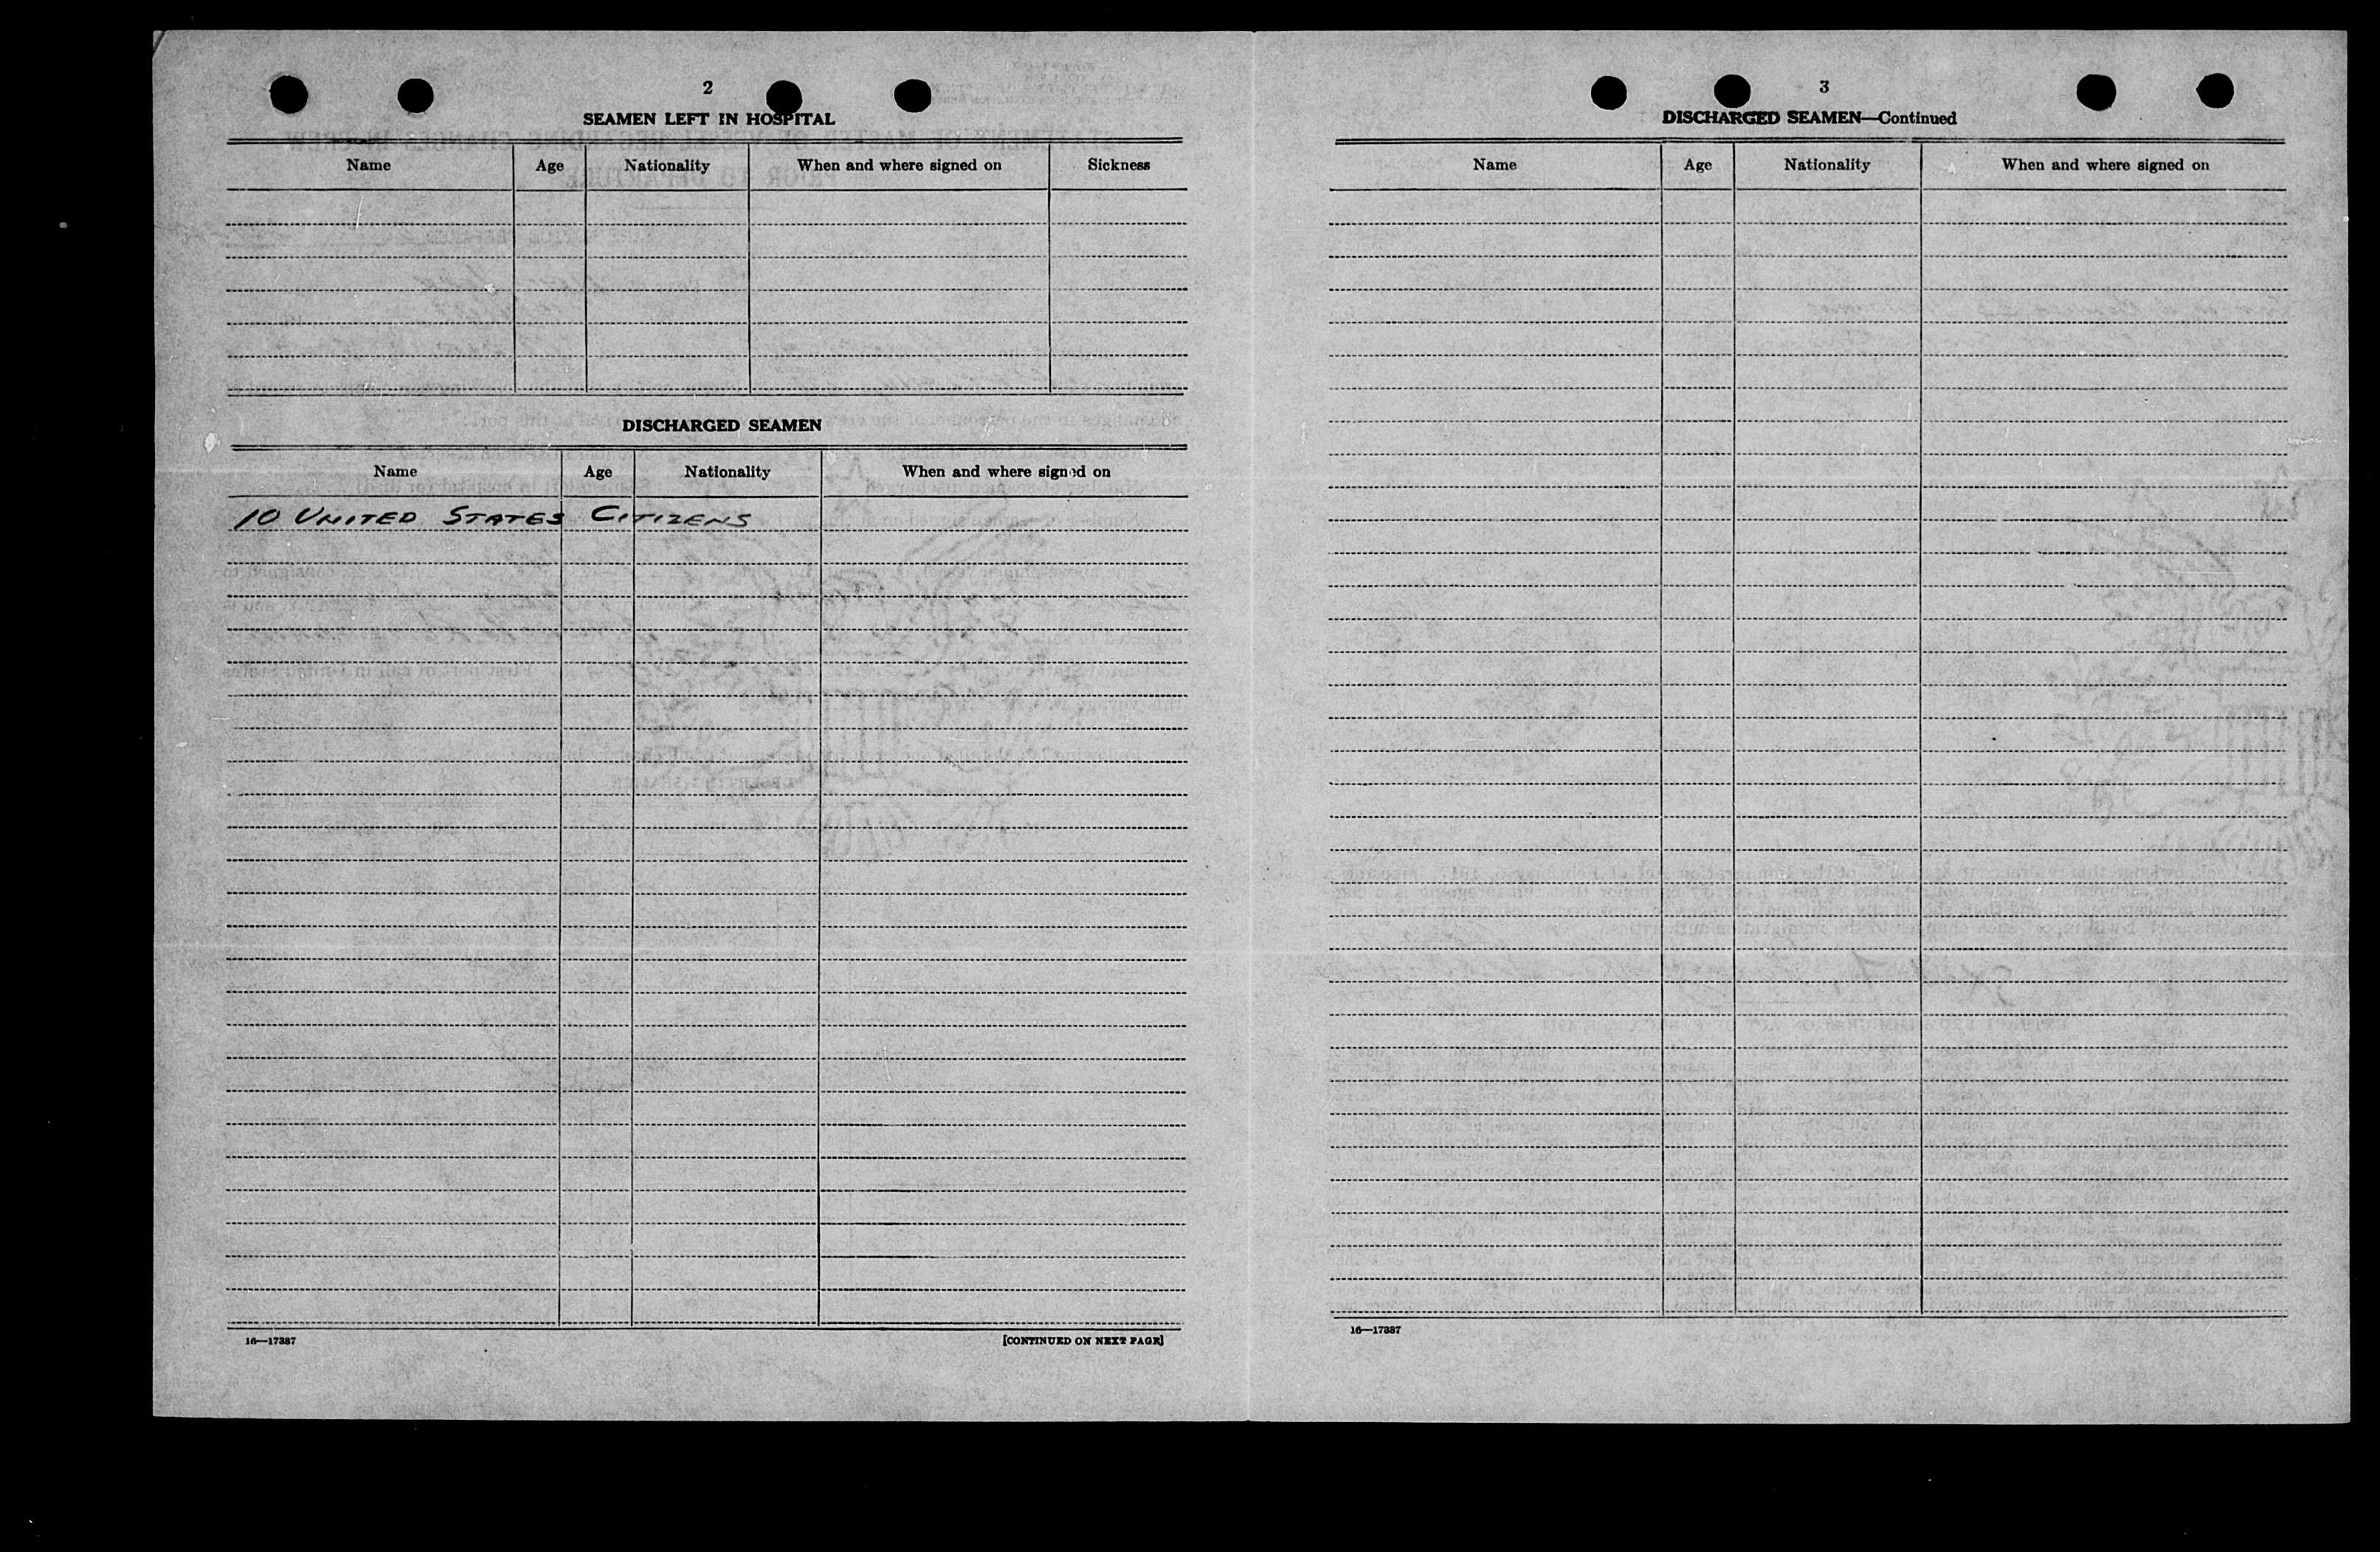 2
SEAMEN LEFT IN HOSPITAL
Name Age Nationality When and where signed on Sickness
DISCHARGED SEAMEN
Name Age Nationality When and where signed on
10 UNITED STATES CITIZENS
16—17387
[CONTINUED ON NEXT PAGE]
3
DISCHARGED SEAMEN—Continued
Name Age Nationality When and where signed on
16—17387